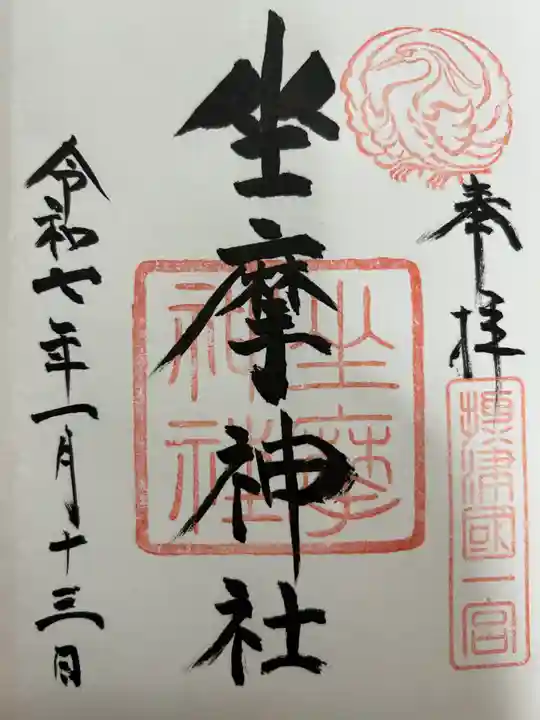 奉拝
摂津國一宮
坐摩神社
坐摩神社
令和七年一月十三日